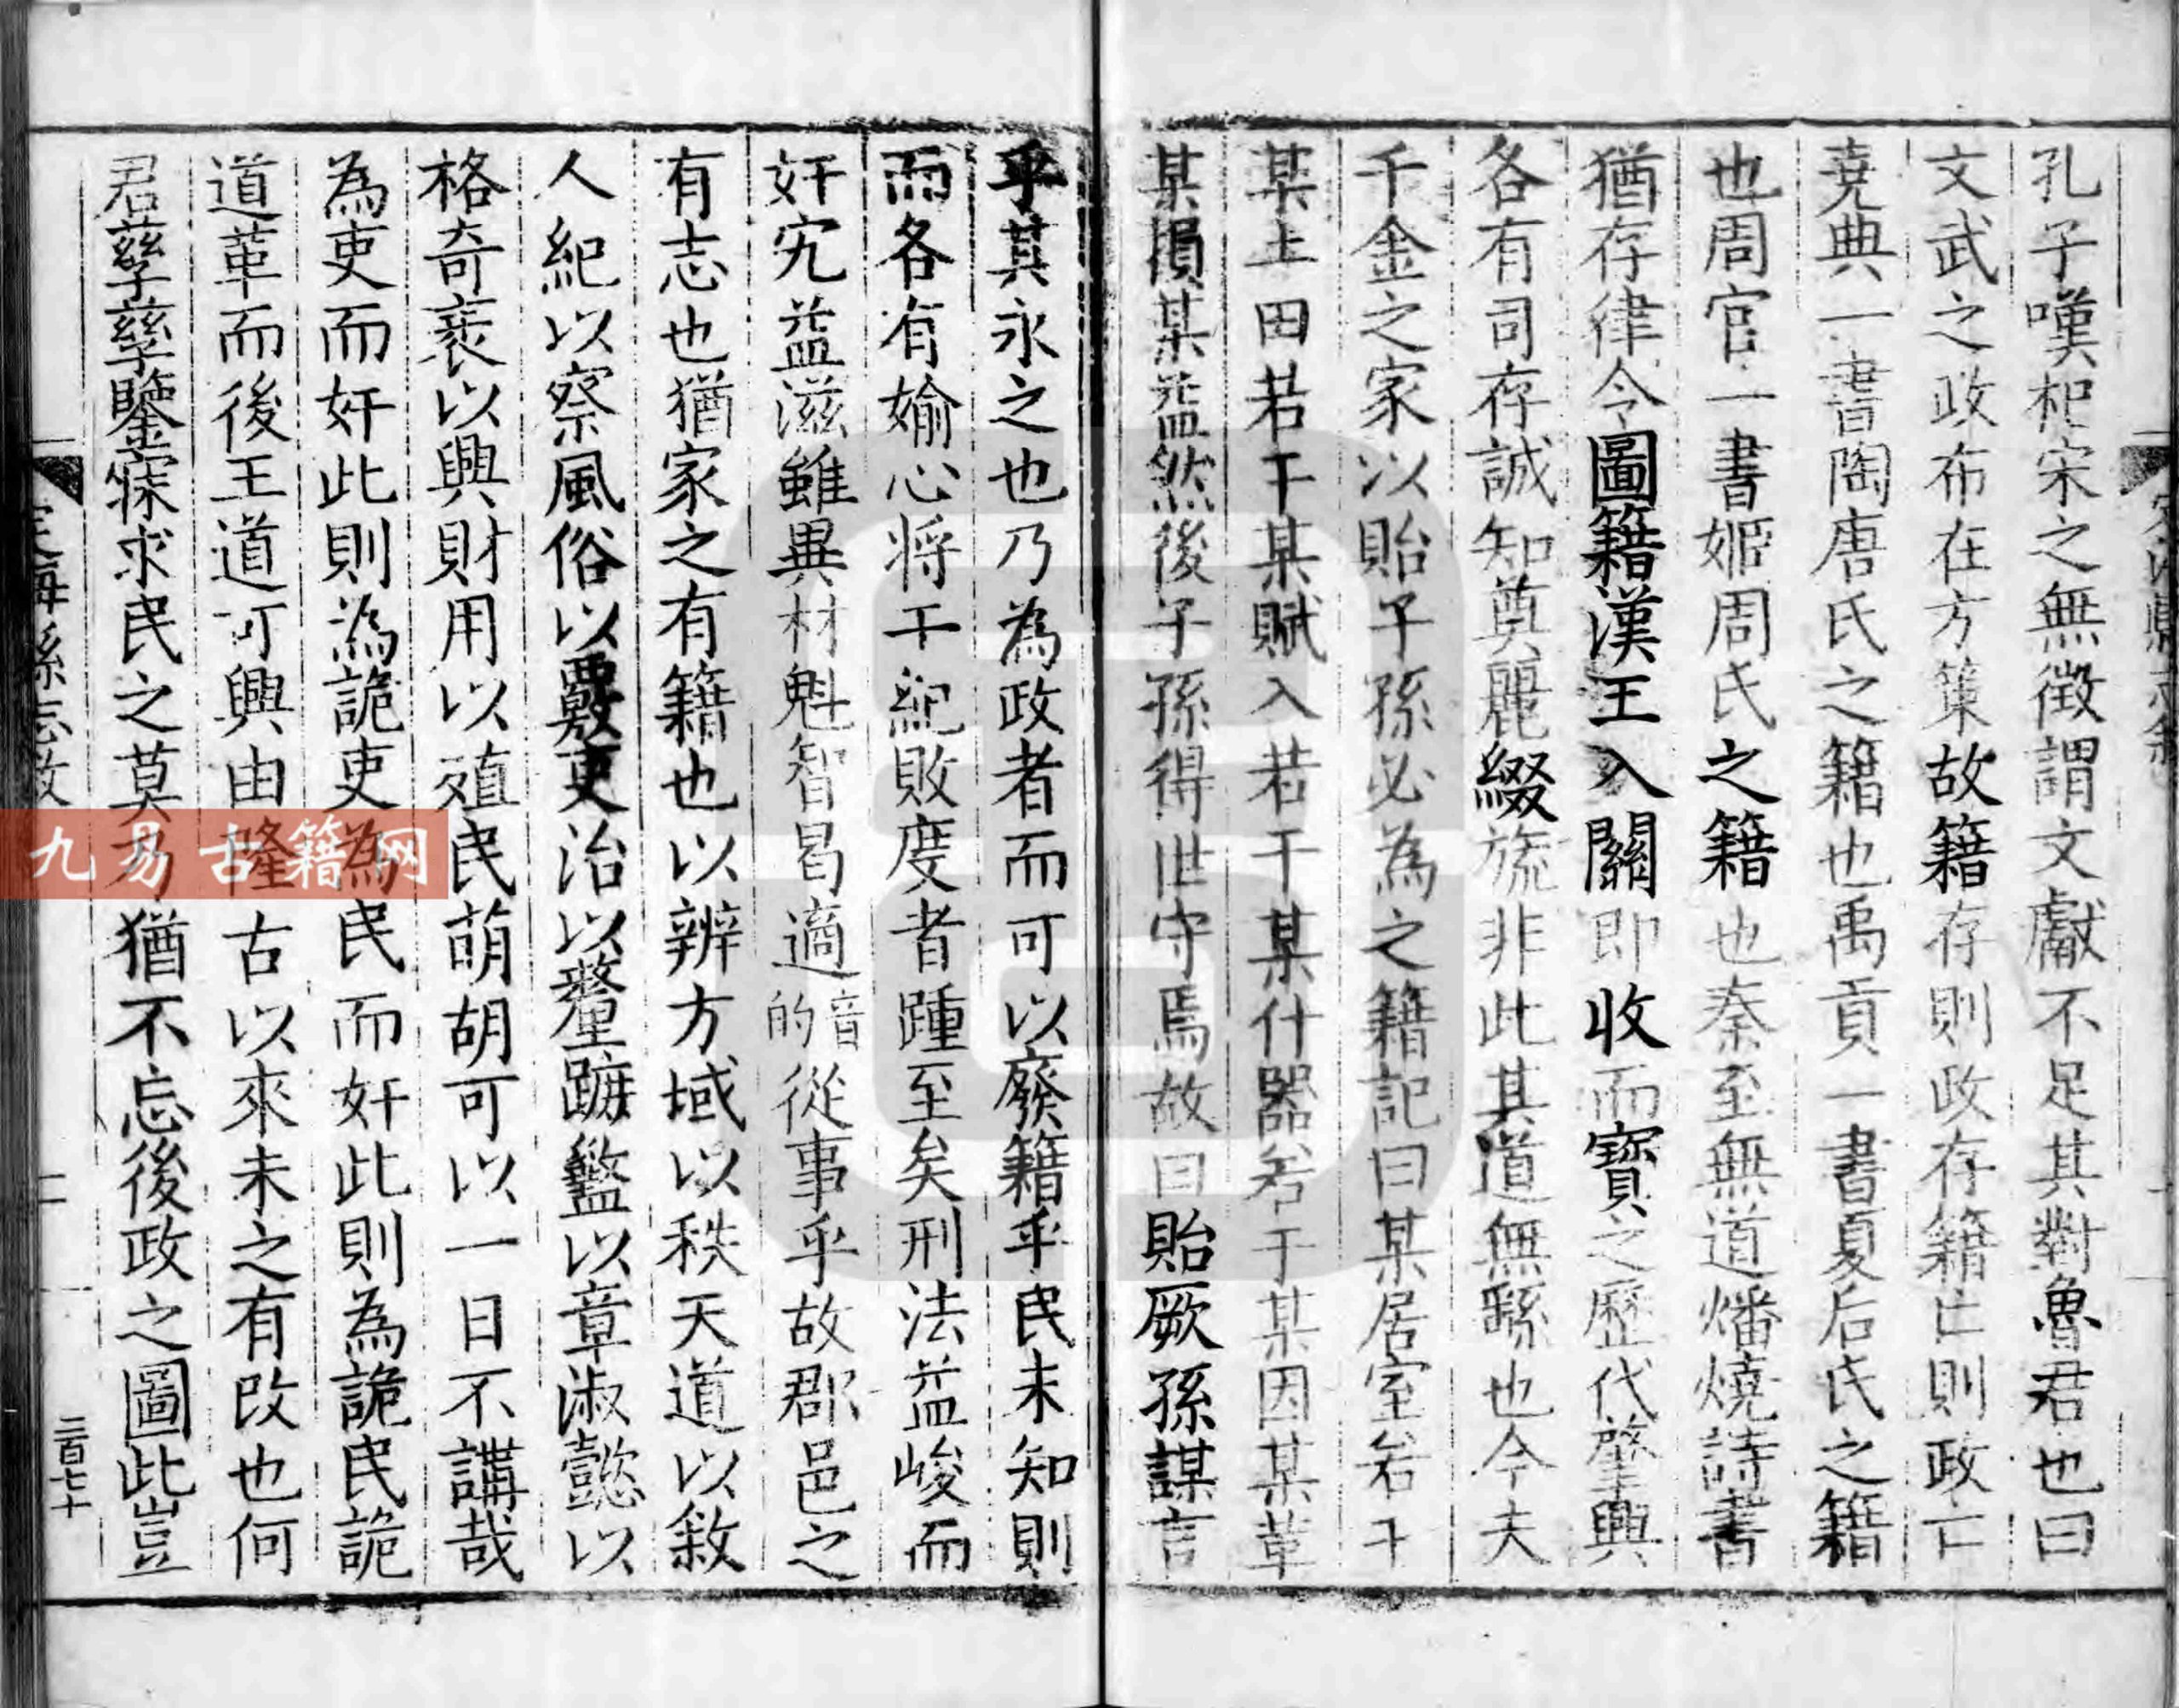 孔子嘆杞宋之無徵謂文獻不足其對魯君也曰
文武之政布在方策故籍存則政存籍亡則政亡
堯典一書陶唐氏之籍也禹貢一書夏后氏之籍
也周官一書姬周氏之籍也秦至無道燔燒詩書
猶存律令圖籍漢王入關即收而寶之歷代肇興
各有司存誠知奠麗綴旒非此其道無繇也今夫
千金之家以貽子孫必為之籍記曰某居室若干
某土田若干某賦入若干某什器若干某因某革
某損某益然後子孫得世守焉故曰貽厥孫謀言
乎其永之也乃為政者而可以廢籍乎民未知則
而各有媮心將干紀敗度者踵至矣刑法益峻而
奸宄益滋雖異材魁智曷適音的從事乎故郡邑之
有志也猶家之有籍也以辨方域以秩天道以敘
人紀以察風俗以覈吏治以釐蹠盭以章淑懿以
格奇衺以興財用以殖民萌胡可以一日不講哉
為吏而奸此則為詭吏為民而奸此則為詭民詭
道革而後王道可興由隆古以來未之有改也何
君孳孳鑒寐求民之莫乃猶不忘後政之圖此豈
定海縣志敘
二
二百七十
九易古籍网